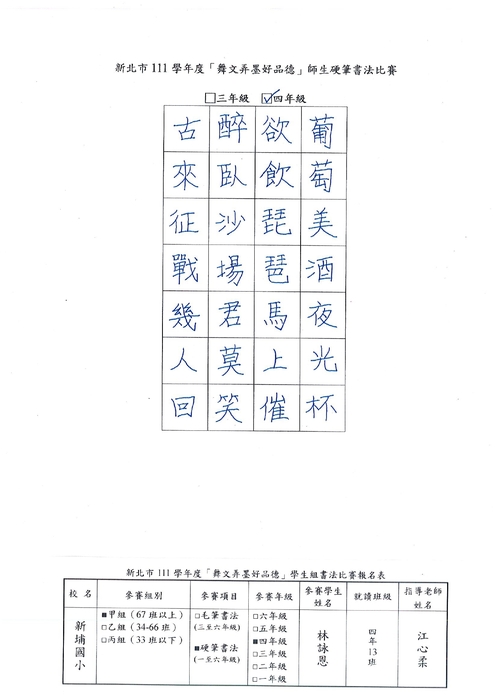 新北市111學年度「舞文弄墨好品德」師生硬筆書法比賽
□三年級 ☑四年級
葡萄美酒夜光杯
欲飲琵琶馬上催
醉臥沙場君莫笑
古來征戰幾人回
新北市111學年度「舞文弄墨好品德」學生組書法比賽報名表
校名 參賽組別 參賽項目 參賽年級 參賽學生姓名 就讀班級 指導老師姓名
新埔國小
■甲組(67班以上)
□乙組(34-66班)
□丙組(33班以下)
□毛筆書法
(三至六年級)
■硬筆書法
(一至六年級)
□六年級
□五年級
■四年級
□三年級
□二年級
□一年級
林詠恩
四年13班
江心柔